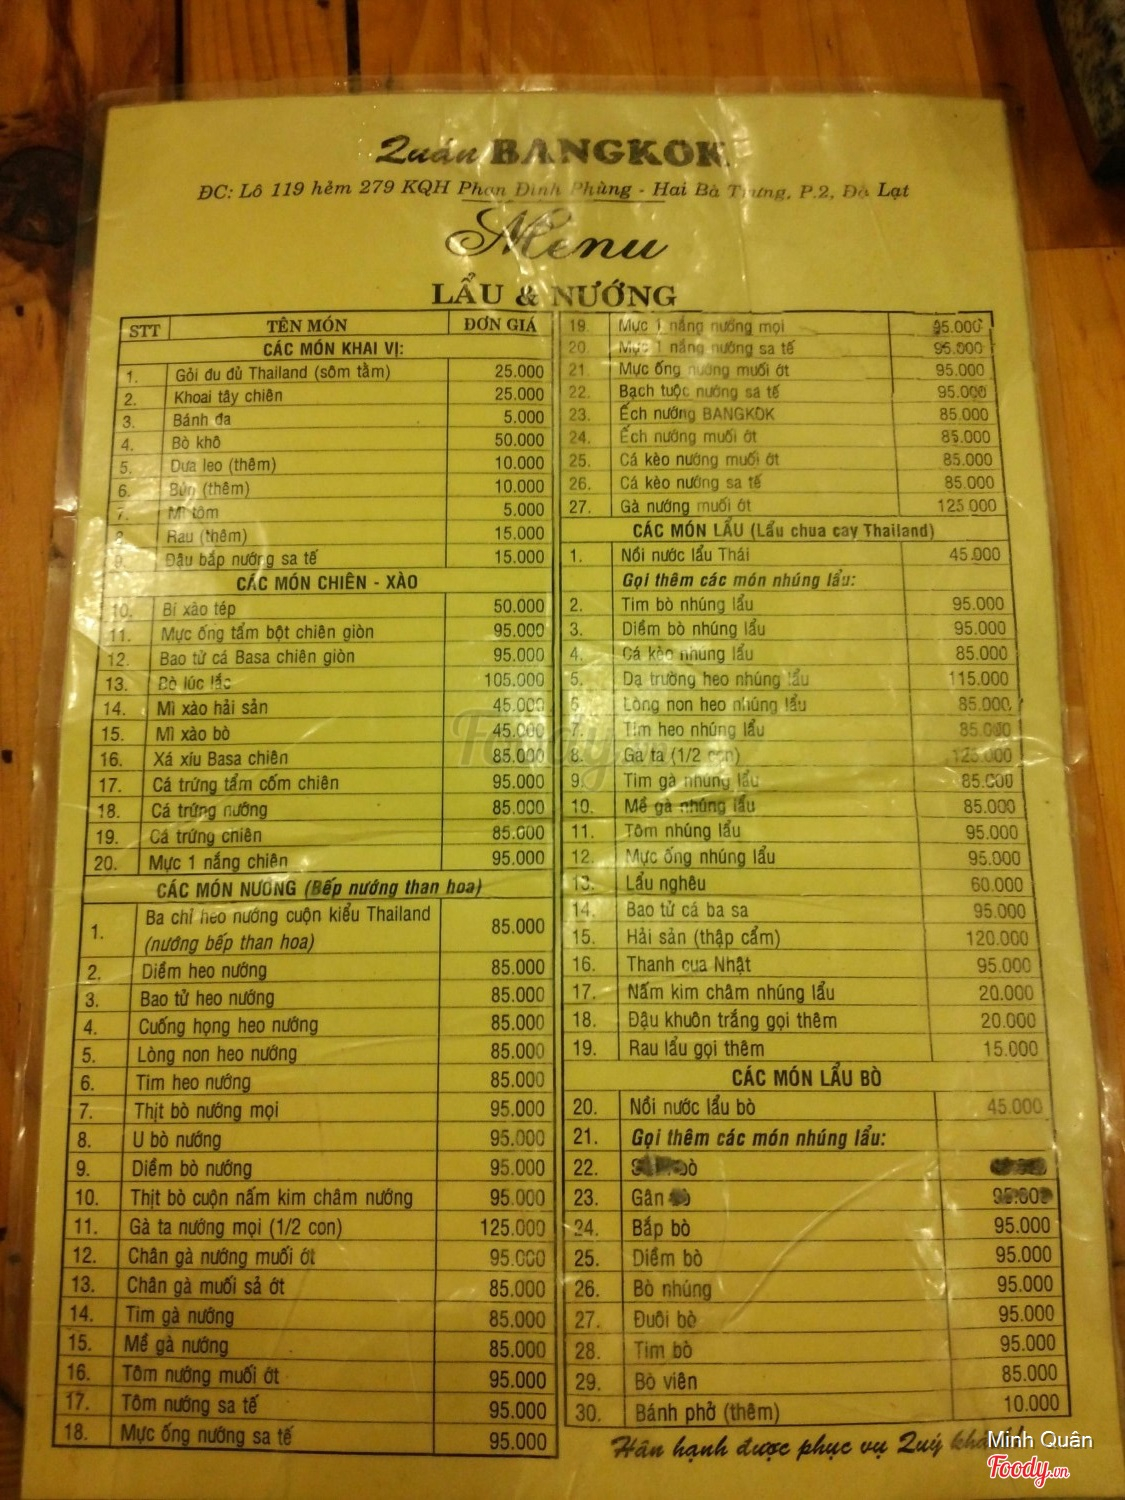 Quán BANGKOK
ĐC: Lô 119 hẻm 279 KQH Phan Đình Phùng - Hai Bà Trưng, P.2, Đà Lạt
Menu
LẨU & NƯỚNG
STT TÊN MÓN ĐƠN GIÁ
CÁC MÓN KHAI VỊ:
1. Gỏi đu đủ Thailand (sôm tằm) 25.000
2. Khoai tây chiên 25.000
3. Bánh đa 5.000
4. Bò khô 50.000
5. Dưa leo (thêm) 10.000
6. Bún (thêm) 10.000
7. Mì tôm 5.000
8. Rau (thêm) 15.000
9. Đậu bắp nướng sa tế 15.000
CÁC MÓN CHIÊN - XÀO
10. Bí xào tép 50.000
11. Mực ống tẩm bột chiên giòn 95.000
12. Bao tử cá Basa chiên giòn 95.000
13. Bò lúc lắc 105.000
14. Mì xào hải sản 45.000
15. Mì xào bò 45.000
16. Xá xíu Basa chiên 85.000
17. Cá trứng tẩm cốm chiên 95.000
18. Cá trứng nướng 85.000
19. Cá trứng chiên 85.000
20. Mực 1 nắng chiên 95.000
CÁC MÓN NƯỚNG (Bếp nướng than hoa)
1. Ba chỉ heo nướng cuộn kiểu Thailand 85.000
(nướng bếp than hoa)
2. Diềm heo nướng 85.000
3. Bao tử heo nướng 85.000
4. Cuống họng heo nướng 85.000
5. Lòng non heo nướng 85.000
6. Tim heo nướng 85.000
7. Thịt bò nướng mọi 95.000
8. U bò nướng 95.000
9. Diềm bò nướng 95.000
10. Thịt bò cuộn nấm kim châm nướng 95.000
11. Gà ta nướng mọi (1/2 con) 125.000
12. Chân gà nướng muối ớt 95.000
13. Chân gà muối sả ớt 85.000
14. Tim gà nướng 85.000
15. Mề gà nướng 85.000
16. Tôm nướng muối ớt 95.000
17. Tôm nướng sa tế 95.000
18. Mực ống nướng sa tế 95.000
19. Mực 1 nắng nướng mọi 95.000
20. Mực 1 nắng nướng sa tế 95.000
21. Mực ống nướng muối ớt 95.000
22. Bạch tuộc nướng sa tế 95.000
23. Ếch nướng BANGKOK 85.000
24. Ếch nướng muối ớt 85.000
25. Cá kèo nướng muối ớt 85.000
26. Cá kèo nướng sa tế 85.000
27. Gà nướng muối ớt 125.000
CÁC MÓN LẨU (Lẩu chua cay Thailand)
1. Nồi nước lẩu Thái 45.000
Gọi thêm các món nhúng lẩu:
2. Tim bò nhúng lẩu 95.000
3. Diềm bò nhúng lẩu 95.000
4. Cá kèo nhúng lẩu 85.000
5. Dạ trường heo nhúng lẩu 115.000
6. Lòng non heo nhúng lẩu 85.000
7. Tim heo nhúng lẩu 85.000
8. Gà ta (1/2 con) 125.000
9. Tim gà nhúng lẩu 85.000
10. Mề gà nhúng lẩu 85.000
11. Tôm nhúng lẩu 95.000
12. Mực ống nhúng lẩu 95.000
13. Lẩu nghêu 60.000
14. Bao tử cá ba sa 95.000
15. Hải sản (thập cẩm) 120.000
16. Thanh cua Nhật 95.000
17. Nấm kim châm nhúng lẩu 20.000
18. Đậu khuôn trắng gọi thêm 20.000
19. Rau lẩu gọi thêm 15.000
CÁC MÓN LẨU BÒ
20. Nồi nước lẩu bò 45.000
21. Gọi thêm các món nhúng lẩu:
22. bò
23. Gân 95.000
24. Bắp bò 95.000
25. Diềm bò 95.000
26. Bò nhúng 95.000
27. Đuôi bò 95.000
28. Tim bò 95.000
29. Bò viên 85.000
30. Bánh phở (thêm) 10.000
Hân hạnh được phục vụ Quý
Minh Quân
Foody.vn